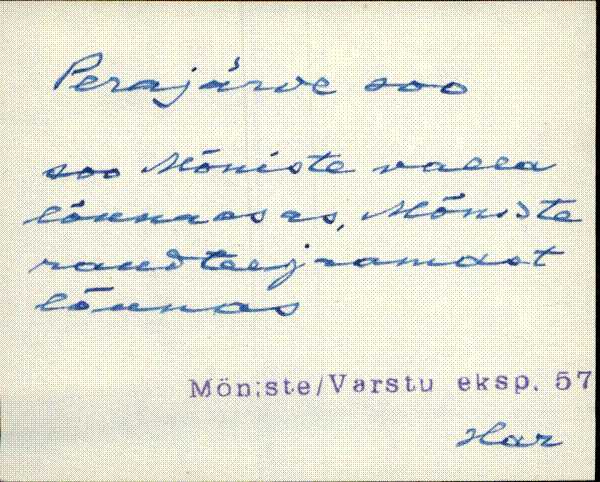 Perajärve soo
soo Mõniste valla
lõunaosas, Mõniste
raudteejaamast
lõunas
Mõniste/Varstu eksp. 57
Har